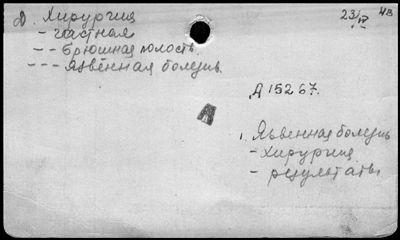 Хирургия
- частная
- - брюшная полость.
- - - Язвенная болезнь.
23/IV
4В
A15267.
1. Язвенная болезнь
- хирургия
- результаты